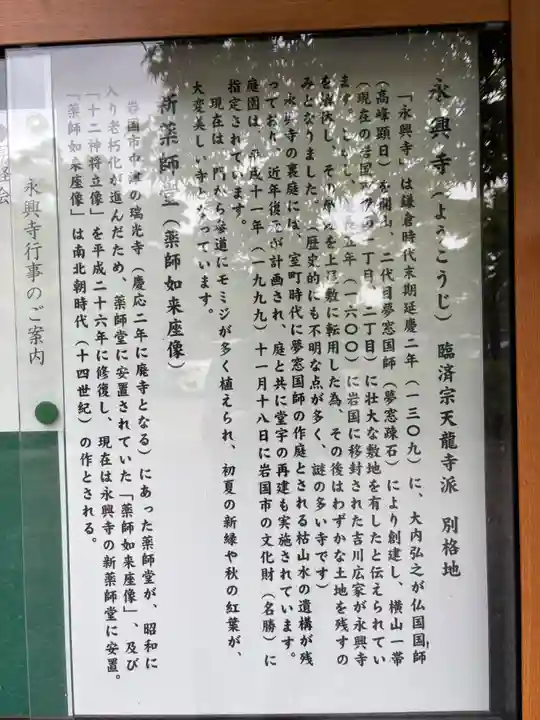 永興寺(ようこうじ) 臨済宗天龍寺派 別格地
「永興寺」は鎌倉時代末期延慶二年(一三〇九)に、大内弘之が仏国国師
(高峰顕日)を開山、二代目夢窓国師(夢窓疎石)により創建し、横山一帯
(現在の岩国市横山一丁目、二丁目)に壮大な敷地を有したと伝えられてい
ます。しかし、慶長五年(一六〇〇)に岩国に移封された吉川広家が永興寺
を解伏し、その敷地を上屋敷に転用した為、その後はわずかな土地を残すの
みとなりました。(歴史的にも不明な点が多く、謎の多い寺です)
永興寺の裏庭には、室町時代に夢窓国師の作庭とされる枯山水の遺構が残
っており、近年復元が計画され、庭と共に堂宇の再建も実施されています。
庭園は、平成十一年(一九九九)十一月十八日に岩国市の文化財(名勝)に
指定されています。
現在は、門から参道にモミジが多く植えられ、初夏の新緑や秋の紅葉が、
大変美しい寺となっています。
新薬師堂(薬師如来座像)
岩国市中津の瑞光寺(慶応二年に廃寺となる)にあった薬師堂が、昭和に
入り老朽化が進んだため、薬師堂に安置されていた「薬師如来座像」、及び
「十二神将立像」を平成二十六年に修復し、現在は永興寺の新薬師堂に安置。
「薬師如来座像」は南北朝時代(十四世紀)の作とされる。
永興寺行事のご案内